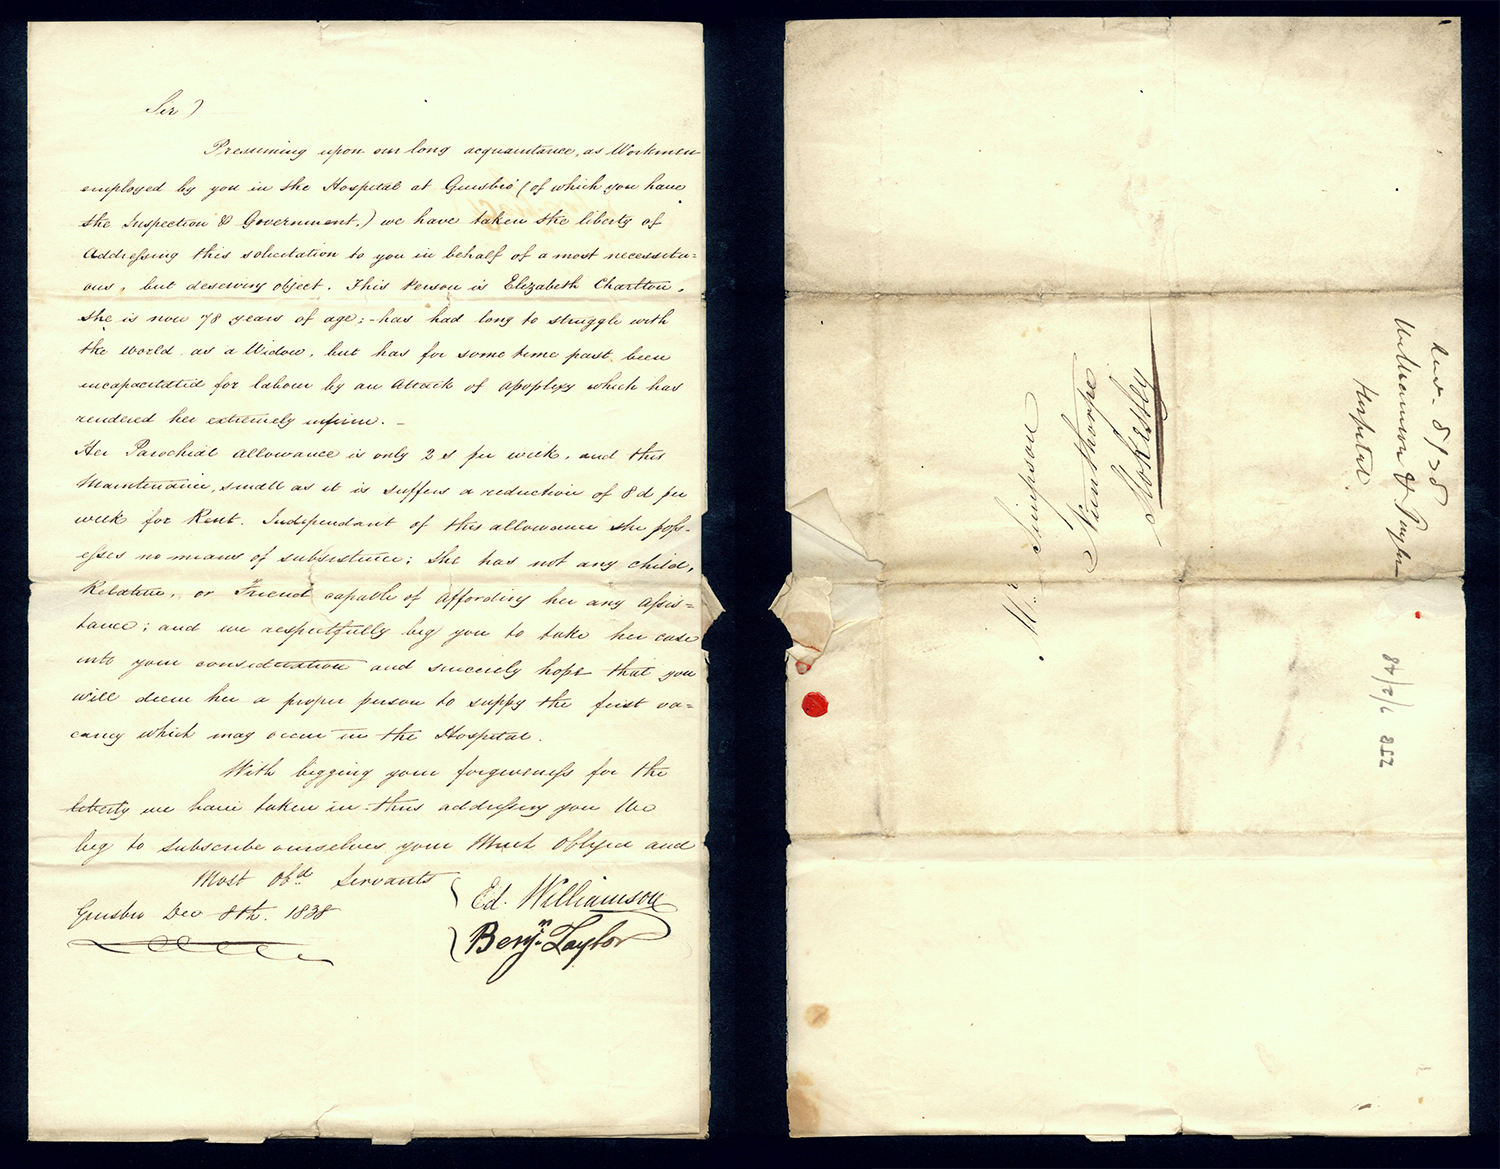 Sir)
Presuming upon our long acquaintance, as Workmen
employed by you in the Hospital at Guisbro' (of which you have
the Inspection & Government,) we have taken the liberty of
Addressing this solicitation to you in behalf of a most necessitu=
ous, but deserving object. This Person is Elizabeth Charlton,
she is now 78 years of age; - has had long to struggle with
the world as a Widow, but has for some time past been
incapacitated for labour by an Attack of Apoplexy which has
rendered her extremely infirm. -
Her Parochial allowance is only 2s per week, and this
Maintenance, small as it is suffers a reduction of 8d per
week for Rent. Independant of this allowance she poss-
esses no means of subsistence; she has not any child,
Relative, or Friend capable of affording her any Assis=
tance; and we respectfully beg you to take her case
into your consideration and sincerely hope that you
will deem her a proper person to supply the first va=
cancy which may occur in the Hospital.
With begging your forgiveness for the
liberty we have taken in thus addressing you We
beg to Subscribe ourselves your Much Obliged and
Most Obd. Servants
Ed. Williamson
Guisbro Dec 8th. 1838
Benjn. Taylor
Mr. Simpson
Nunthorpe
Stokesley
8/38
Williamson & Taylor
Hospital.
ZJB 7/2/48